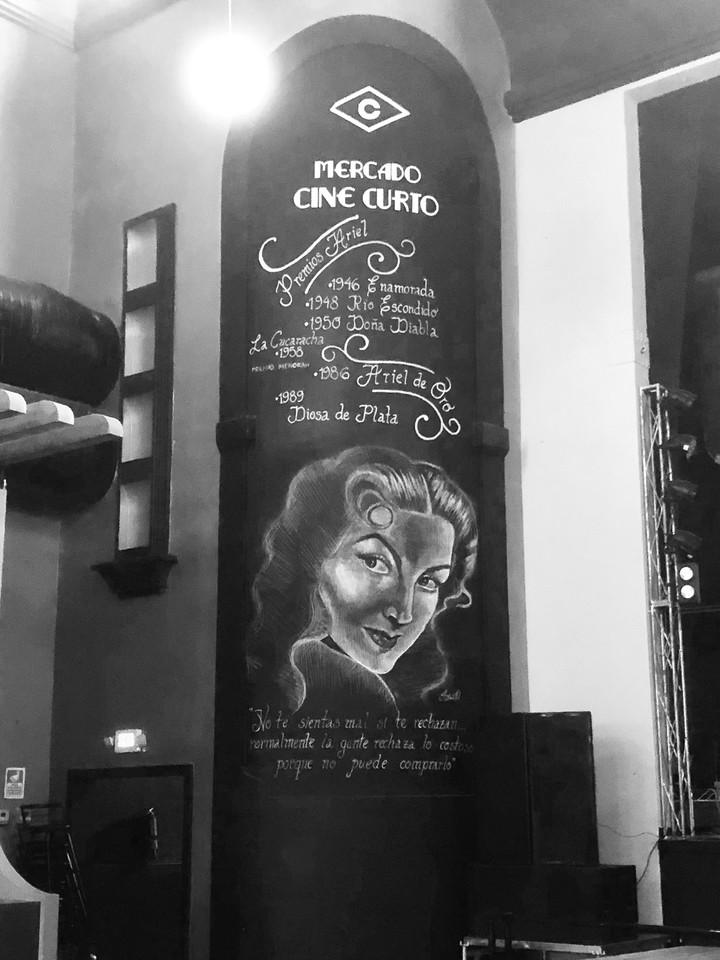 C
MERCADO
CINE CURTO
Premios Ariel
•1946 Enamorada
•1948 Río Escondido
•1950 Doña Diabla
La Cucaracha
•1958
PREMIO MENORAH
•1986 Ariel de Oro
•1989
Diosa de Plata
"No te sientas mal si te rechazan...
normalmente la gente rechaza lo costoso
porque no puede comprarlo"